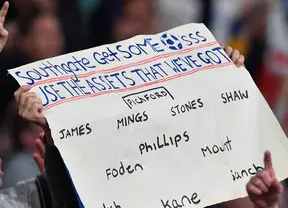 Southgate Get SOME SSS
USE THE ASSETS THAT WE'VE GOT
PICKFORD
JAMES MINGS STONES SHAW
PHILLIPS
Foden Mount
Kane